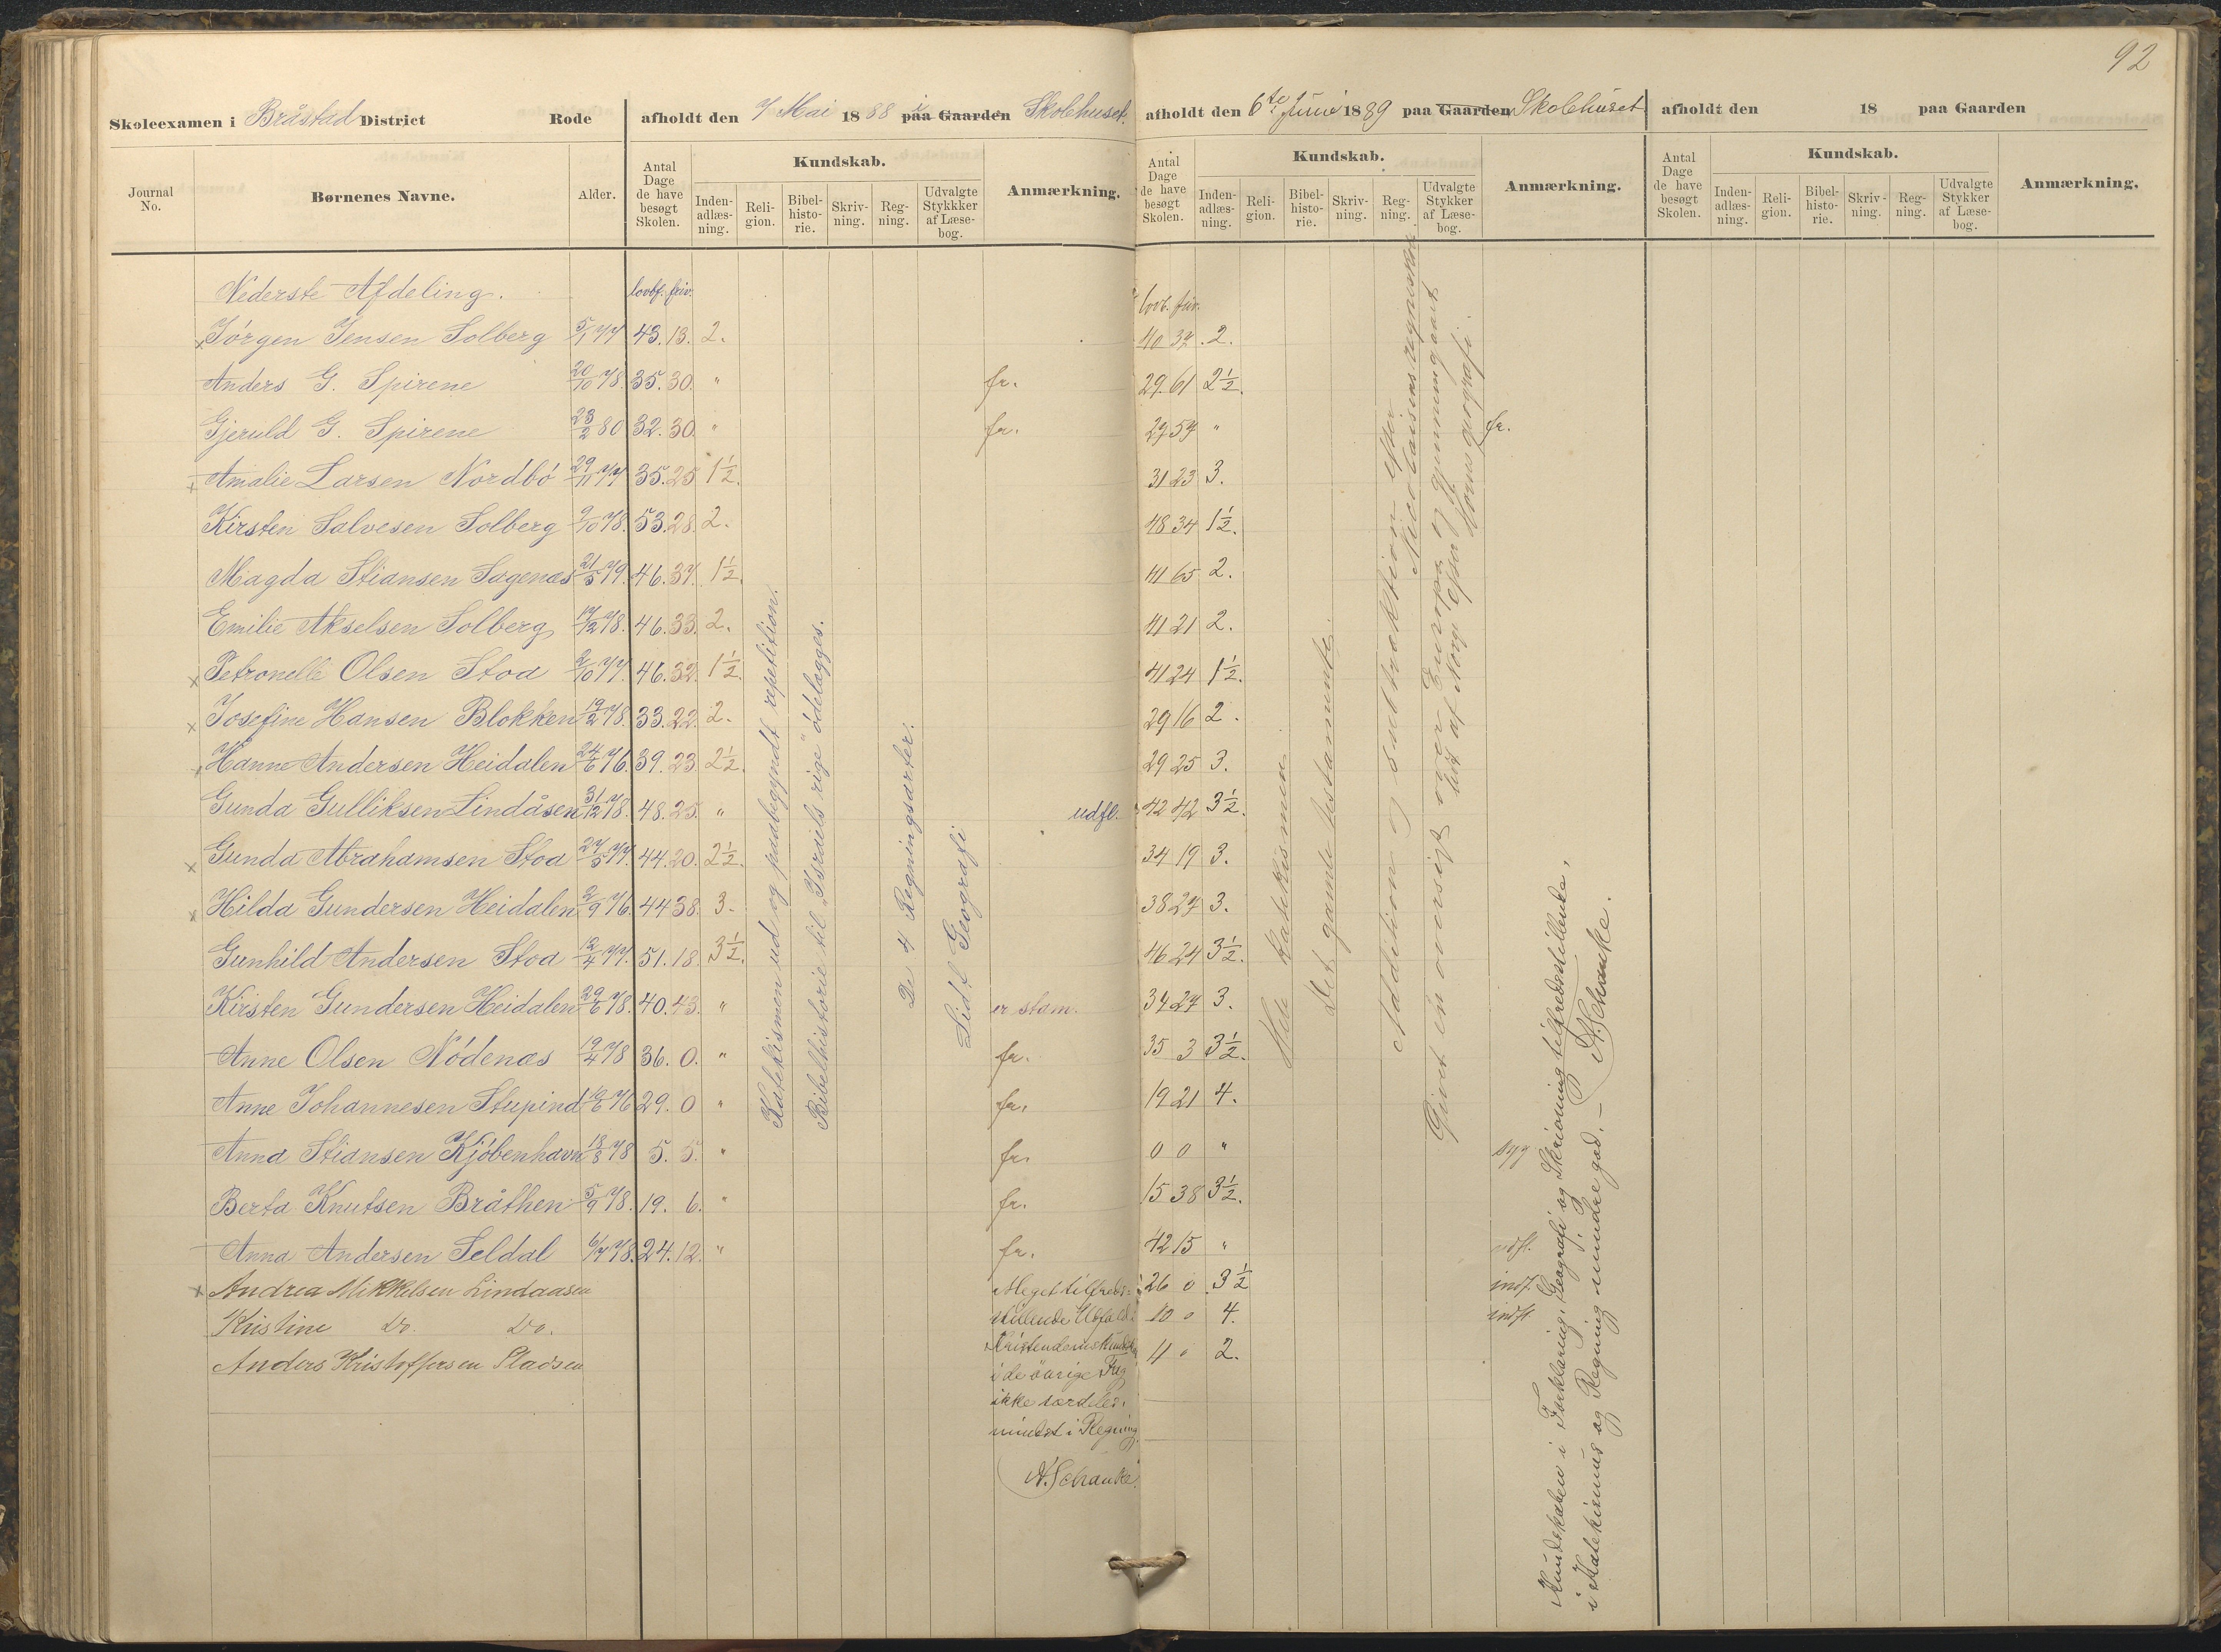 92
Skoleexamen i Bråstad District Rode afholdt den 7 Mai 1888 i paa Gaarden Skolehuset. afholdt den 6te Juni 1889 paa Gaarden Skolehuset afholdt den 18 paa Gaarden
Journal No. Børnenes Navne. Alder. Antal Dage de have besøgt Skolen. Kundskab. Inden-adlæs-ning. Reli-gion. Bibel-histo-rie. Skriv-ning. Reg-ning. Udvalgte Stykkker af Læse-bog. Anmærkning. Antal Dage de have besøgt Skolen. Kundskab. Inden-adlæs-ning. Reli-gion. Bibel-histo-rie. Skriv-ning. Reg-ning. Udvalgte Stykker af Læse-bog. Anmærkning. Antal Dage de have besøgt Skolen. Kundskab. Inden-adlæs-ning. Reli-gion. Bibel-histo-rie. Skriv-ning. Reg-ning. Udvalgte Stykker af Læse-bog. Anmærkning.
Nederste Afdeling. lovbf. friv. lovb. friv.
x Jörgen Jensen Solberg 5/1 77 43. 13. 2. 40 32. 2.
Anders G. Spirene 20/10 78. 35. 30. " fr. 29. 61 2 1/2.
Gjeruld G. Spirene 23/2 80 32. 30. " fr. 27 57 " fr.
x Amalie Larsen Nordbö 29/11 77 35. 25 1 1/2. 31 23 3.
Kirsten Salvesen Solberg 9/10 78. 53. 28. 2. 48 34 1 1/2.
Magda Stiansen Sagenæs 21/5 79. 46. 37. 1 1/2. 41 65 2.
Emilie Akselsen Solberg 17/12 78. 46. 33. 2. 41 21 2.
x Petronelle Olsen Stoa 2/10 77. 46. 32. 1 1/2. 41 24 1 1/2.
x Josefine Hansen Blokken 19/2 78. 33. 22. 2. 29 16 2.
x Hanne Andersen Heidalen 24/6 76. 39. 23. 2 1/2. 29 25 3.
Gunda Gulliksen Lindåsen 31/12 78. 48. 25. " udfl. 42 42 3 1/2.
x Gunda Abrahamsen Stoa 27/5 77. 44. 20. 2 1/2. 34 19 3.
x Hilda Gundersen Heidalen 2/9 76. 44 38. 3. 38 27 3.
Gunhild Andersen Stoa 12/4 77. 51. 18. 3 1/2. 46 24 3 1/2.
Kirsten Gundersen Heidalen 29/6 78. 40. 43. " er stam. 37 27 3.
Anne Olsen Nödenæs 19/4 78 36. 0. " fr. 35 3 3 1/2.
Anne Johannesen Stupind 10/6 76 29. 0 " fr. 19 21 4.
Anna Stiansen Kjöbenhavn 18/8 78 5. 5. " fr. 0 0 " syg
Berta Knutsen Bråthen 5/9 78. 19. 6. " fr. 15 38 3 1/2.
Anna Andersen Seldal 6/7 78. 24. 12. " fr. 42 15 " udfl.
x Andrea Mikkelsen Lindaasen 26 0 3 1/2 indf.
Kristine Do. Do. 10 0 4. indft
Anders Kristoffersen Pladsen 11 " 2.
Katekismen ud og paabegyndt repetition.
Bibelhistorie til "Israels rige" ödelægges.
De 4 Regningsarter.
Lidt Geografi
Meget tilfreds-
stillende Udfald i
Kristendomskundskab
i de övrige Fag
ikke særdeles,
mindst i Regning.
A. Schanke.
Hele Katekismen
Det gamle testamente.
Addition og subtraktion efter Nicolaisens regneskole
Givet en oversigt over Europa og gjennemgaaet
lidt af Norge efter Horns geografi.
Kundskaben i Forklaring, Geografi og Skrivning tilfredsstillende,
i Katekismus og Regning mindre god. –
A. Schanke.